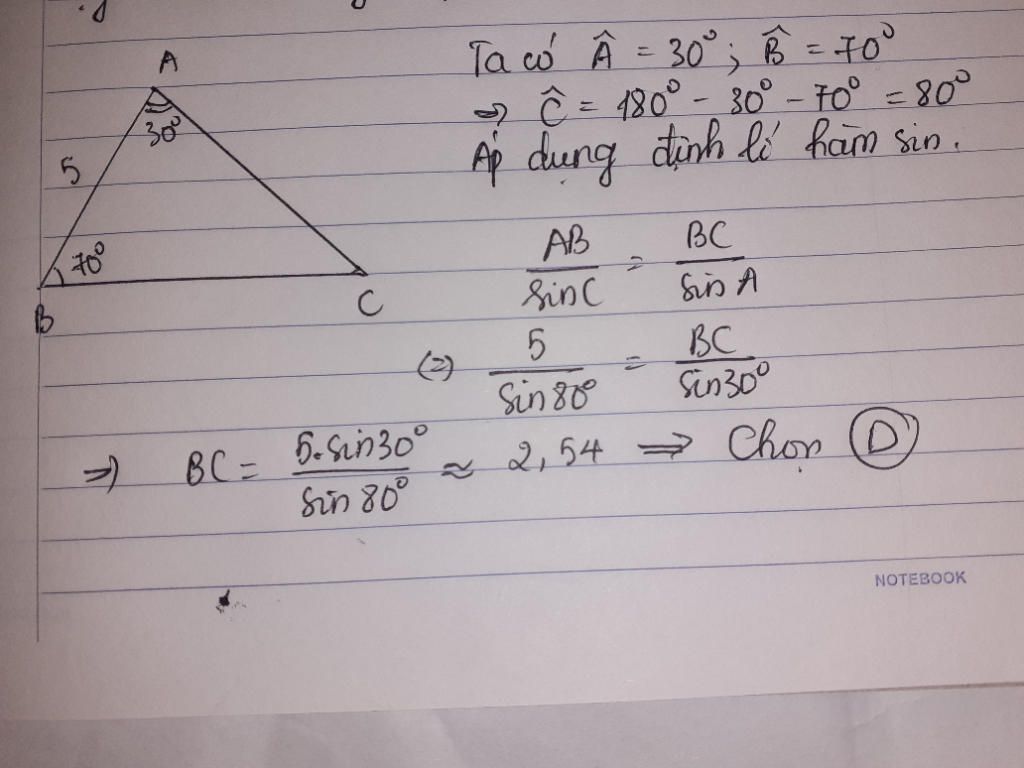 A
30⁰
5
70⁰
B
C
Ta có Â = 30⁰ ; B̂ = 70⁰
=> Ĉ = 180⁰ - 30⁰ - 70⁰ = 80⁰
Áp dụng định lí hàm sin.
AB/sinC = BC/sinA
(=) 5/sin80⁰ = BC/sin30⁰
=> BC = 5.sin30⁰/sin80⁰ ≈ 2,54 => Chọn D
NOTEBOOK